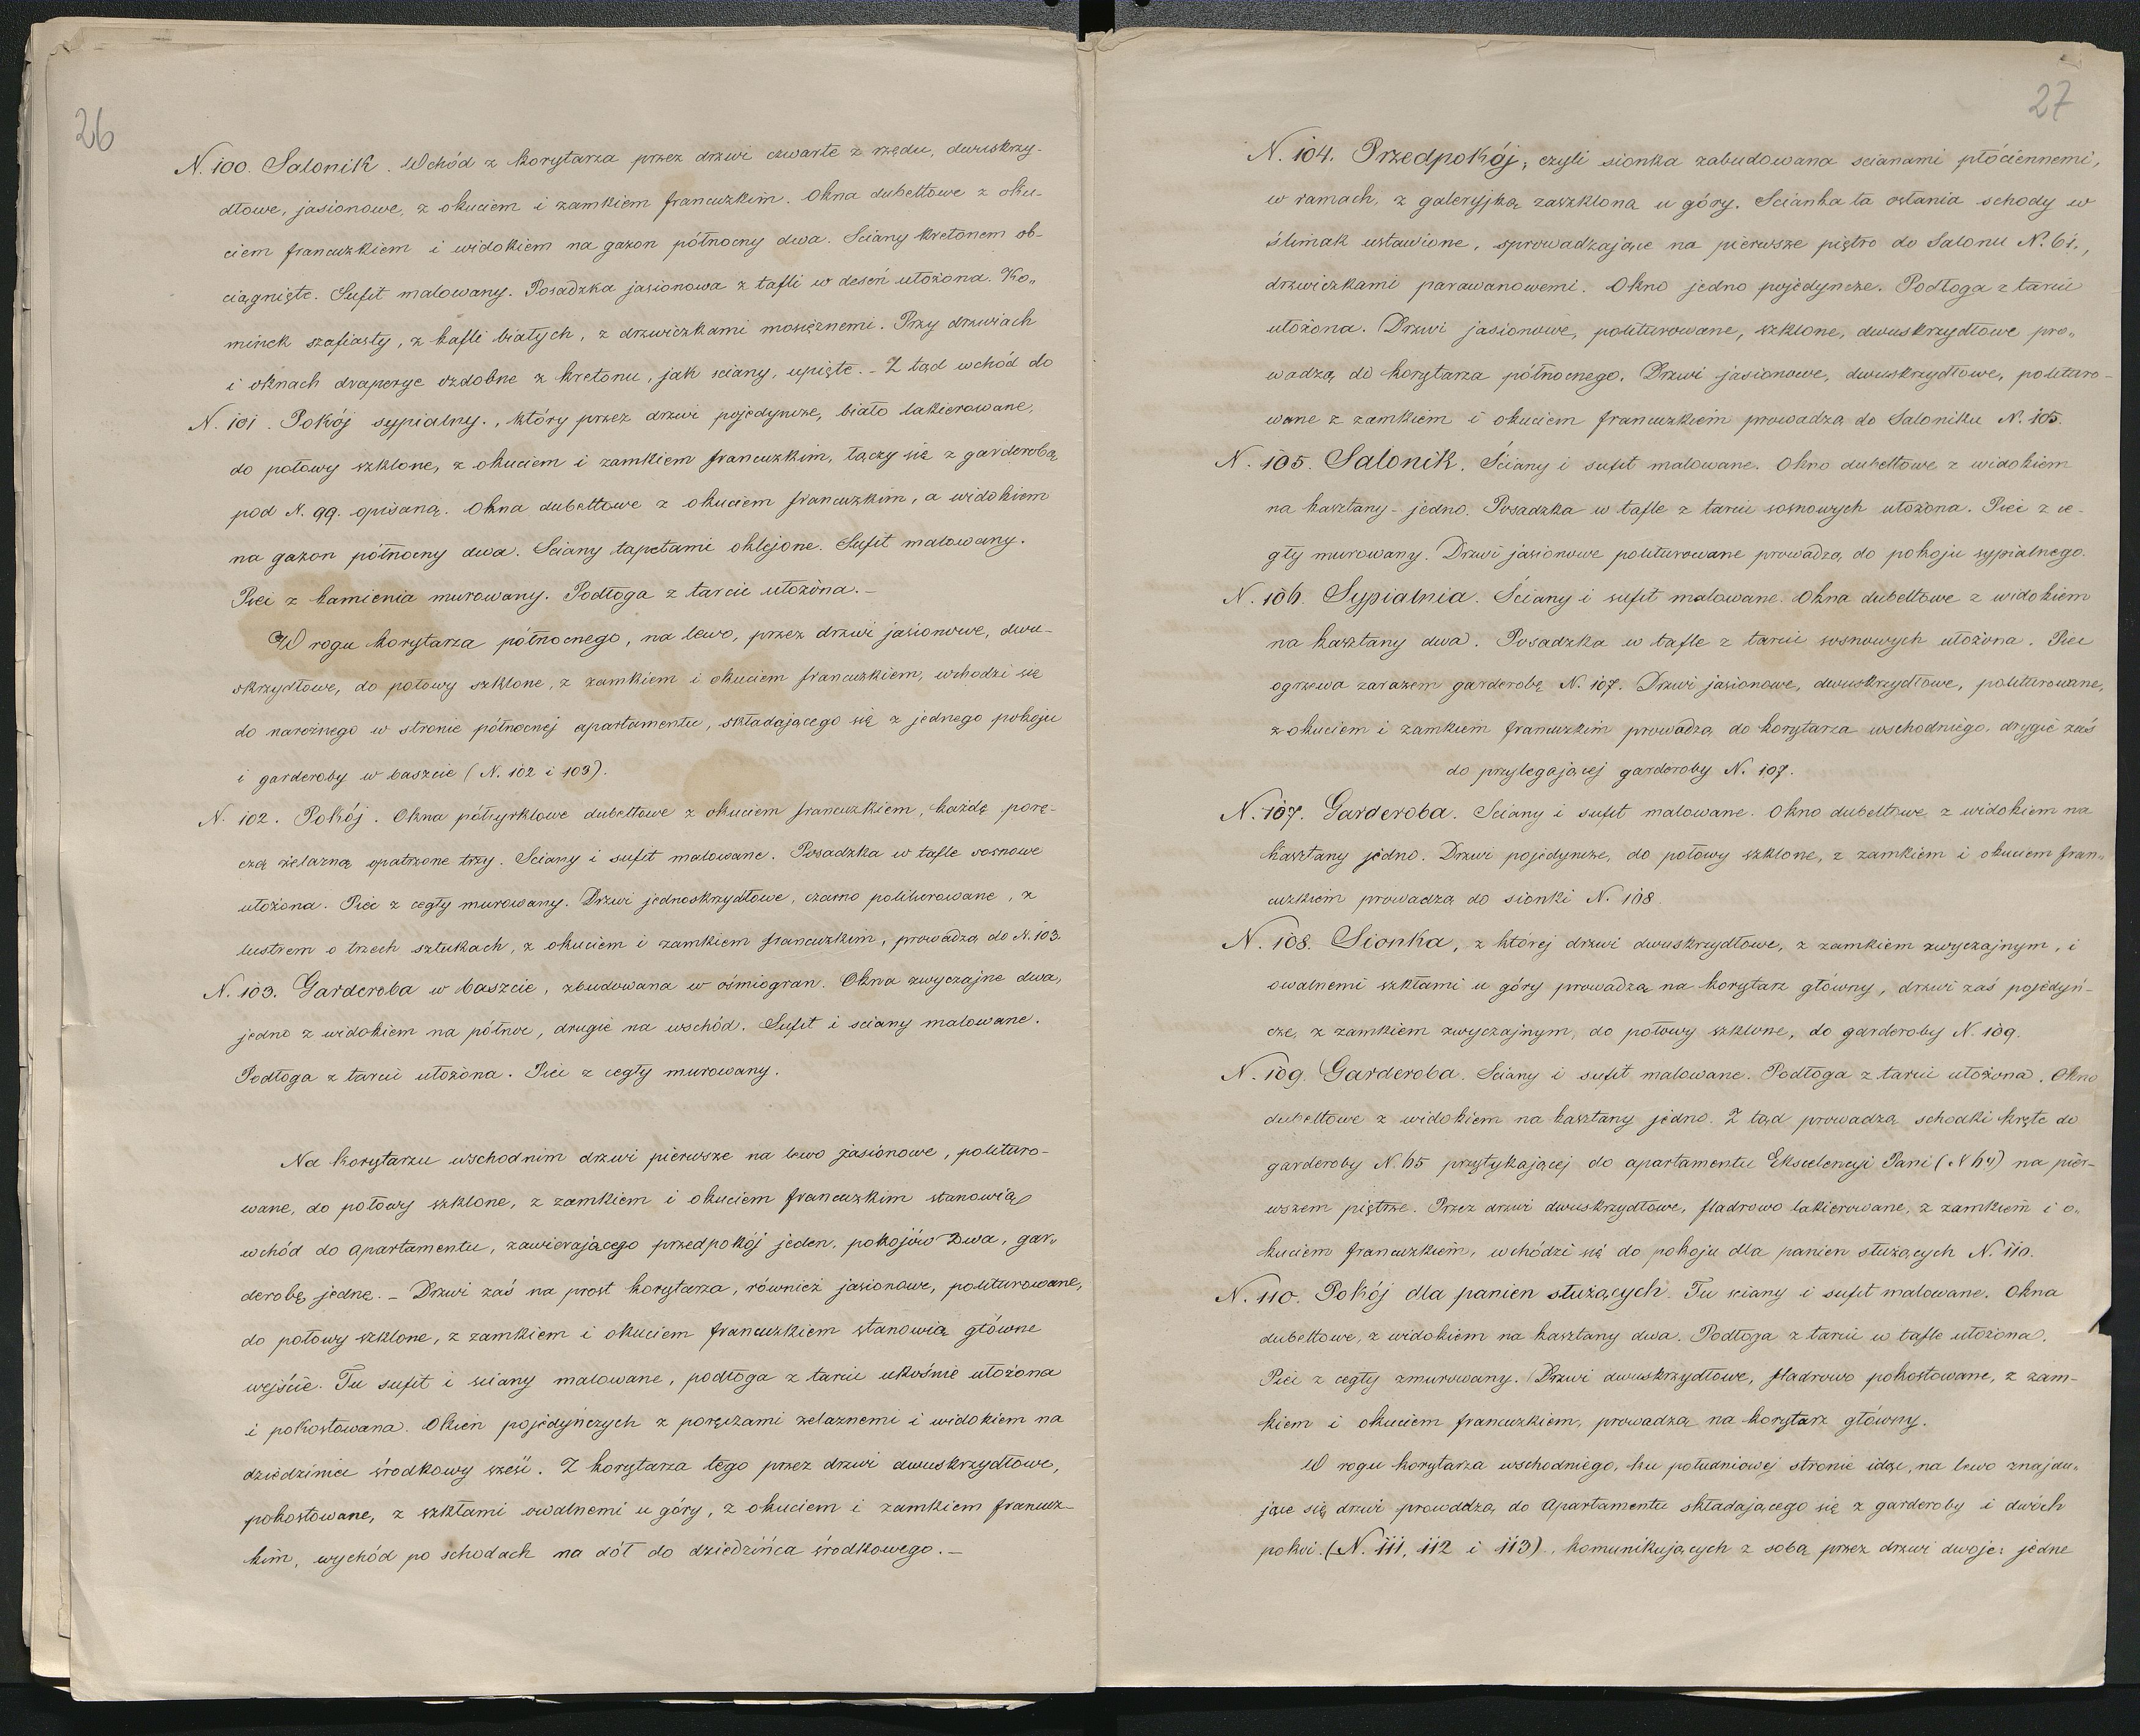 26
N. 100. Salonik. Wchód z korytarza przez drzwi czwarte z rzędu, dwuskrzy-
dłowe, jasionowe, z okuciem i zamkiem francuzkim. Okna dubeltowe z oku-
ciem francuzkiem i widokiem na gazon północny dwa. Sciany kretonem ob-
ciągnięte. Sufit malowany. Posadzka jasionowa z tafli w deseń ułożona. Ko„
minek szafiasty, z kafli białych, z drzwiczkami mosięznemi. Przy drzwiach
i oknach draperye ozdobne z kretonu, jak sciany, upięte. – Z tąd wchód do
N. 101. Pokój sypialny., który przez drzwi pojedyncze, biało lakierowane,
do połowy szklone, z okuciem i zamkiem francuzkim, łączy się z garderobą
pod N. 99. opisaną. Okna dubeltowe z okuciem francuzkim, a widokiem
na gazon północny dwa. Sciany tapetami oklejone. Sufit malowany.
Piec z kamienia murowany. Podłoga z tarcic ułożona. –
W rogu korytarza północnego, na lewo, przez drzwi jasionowe, dwu-
skrzydłowe, do połowy szklone, z zamkiem i okuciem francuzkiem, wchodzi się
do narożnego w stronie północnéj apartamentu, składającego się z jednego pokoju
i garderoby w baszcie (N. 102 i 103).
N. 102. Pokój. Okna półcyrklowe dubeltowe z okuciem francuzkiem, każdę porę-
czą żelazną opatrzone trzy. Sciany i sufit malowane. Posadzka w tafle sosnowe
ułożona. Piec z cegły murowany. Drzwi jednoskrzydłowe, czarno politurowane, z
lustrem o trzech sztukach, z okuciem i zamkiem francuzkim, prowadzą do N. 103.
N. 103. Garderoba w baszcie, zbudowana w ośmiogran. Okna zwyczajne dwa,
jedno z widokiem na północ, drugie na wschód. Sufit i sciany malowane.
Podłoga z tarcic ułożona. Piec z cegły murowany.
Na korytarzu wschodnim drzwi pierwsze na lewo jasionowe, polituro-
wane, do połowy szklone, z zamkiem i okuciem francuzkim stanowią
wchód do apartamentu, zawierającego przedpokój jeden, pokojów dwa, gar„
derobę jednę. – Drzwi zaś na prost korytarza, również jasionowe, politurowane,
do połowy szklone, z zamkiem i okuciem francuzkiem stanowią główne
wejście. Tu sufit i sciany malowane, podłoga z tarcic ukośnie ułożona
i pokostowana. Okien pojedyńczych z poręczami zelaznemi i widokiem na
dziedziniec środkowy sześć. Z korytarza tego przez drzwi dwuskrzydłowe,
pokostowane, z szkłami owalnemi u góry, z okuciem i zamkiem francuz-
kim, wychód po schodach na dół do dziedzińca środkowego. –
27
N. 104. Przedpokój, czyli sionka zabudowana scianami płóciennemi,
w ramach, z galeryjką zaszkloną u góry. Scianka ta osłania schody w
ślimak ustawione, sprowadzające na pierwsze piętro do Salonu N. 61.,
drzwiczkami parawanowemi. Okno jedno pojedyncze. Podłoga z tarcic
ułożona. Drzwi jasionowe, politurowane, szklone, dwuskrzydłowe pro„
wadzą do korytarza północnego. Drzwi jasionowe, dwuskrzydłowe, polituro-
wane z zamkiem i okuciem francuzkiem prowadzą do Saloniku N. 105.
N. 105. Salonik. Ściany i sufit malowane. Okno dubeltowe z widokiem
na kasztany – jedno. Posadzka w tafle z tarcic sosnowych ułożona. Piec z ce-
gły murowany. Drzwi jasionowe politurowane prowadzą do pokoju sypialnego.
N. 106. Sypialnia. Ściany i sufit malowane. Okna dubeltowe z widokiem
na kasztany dwa. Posadzka w tafle z tarcic sosnowych ułożona. Piec
ogrzewa zarazem garderobę N. 107. Drzwi jasionowe, dwuskrzydłowe, politurowane,
z okuciem i zamkiem francuzkim prowadzą do korytarza wschodniego, drugie zaś
do przylegającej garderoby N. 107.
N. 107. Garderoba. Sciany i sufit malowane. Okno dubeltowe z widokiem na
kasztany jedno. Drzwi pojedyncze, do połowy szklone, z zamkiem i okuciem fran„
cuzkiem prowadzą do sionki N. 108.
N. 108. Sionka, z której drzwi dwuskrzydłowe, z zamkiem zwyczajnym, i
owalnemi szkłami u góry prowadzą na korytarz główny, drzwi zaś pojedyń-
cze, z zamkiem zwyczajnym, do połowy szklone, do garderoby N. 109.
N. 109. Garderoba. Sciany i sufit malowane. Podłoga z tarcic ułożona. Okno
dubeltowe z widokiem na kasztany jedno. Z tąd prowadzą schodki kręte do
garderoby N. 65 przytykającej do apartamentu Ekscelencyi Pani (N 64) na pier-
wszem piętrze. Przez drzwi dwuskrzydłowe, fladrowo lakierowane, z zamkiem i o„
kuciem francuzkiem, wchódzi się do pokoju dla panien służących N. 110.
N. 110. Pokój dla panien służących. Tu sciany i sufit malowane. Okna
dubeltowe, z widokiem na kasztany dwa. Podłoga z tarcic w tafle ułożona.
Piec z cegły zmurowany. Drzwi dwuskrzydłowe, fladrowo pokostowane, z zam-
kiem i okuciem francuzkiem, prowadzą na korytarz główny.
W rogu korytarza wschodniego, ku południowej stronie idąc, na lewo znajdu„
jące się drzwi prowadzą do apartamentu składającego się z garderoby i dwóch
pokoi. (N. 111, 112 i 113), komunikujących z sobą przez drzwi dwoje: jedne